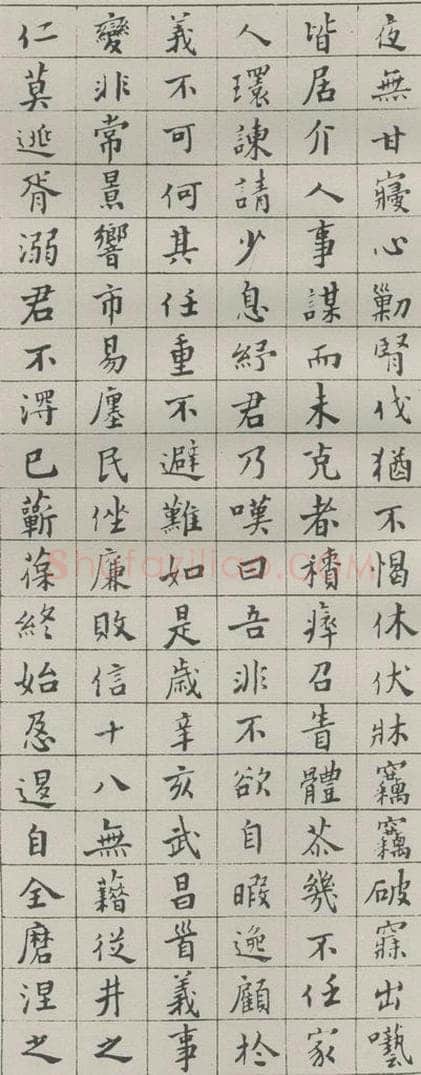 夜無甘寢心勦腎伐猶不愒休伏牀竊竊破寐出囈
皆居介人事謀而未克者積瘁召眚體苶幾不任家
人環諫請少息紓君乃嘆曰吾非不欲自暇逸顧於
義不可何其任重不避難如是歲辛亥武昌首義事
變非常景響市易廛民坐廉敗信十八無藉從井之
仁莫逃胥溺君不得已蘄葆終始自全磨涅之
Shufaziliao.com